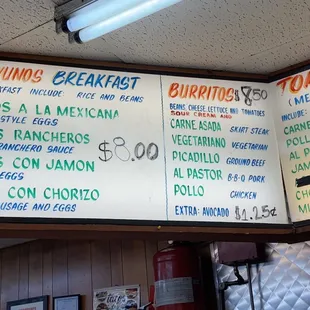 BREAKFAST
BREAKFAST INCLUDE: RICE AND BEANS
A LA MEXICANA
STYLE EGGS
RANCHEROS
RANCHERO SAUCE
CON JAMON
EGGS
$8.00
CON CHORIZO
AND EGGS
BURRITOS $8.50
BEANS, CHEESE, LETTUCE AND TOMATOES
SOUR CREAM AND
CARNE ASADA SKIRT STEAK
VEGETARIANO VEGETARIAN
PICADILLO GROUND BEEF
AL PASTOR B-B-Q PORK
POLLO CHICKEN
EXTRA: AVOCADO $1.25¢